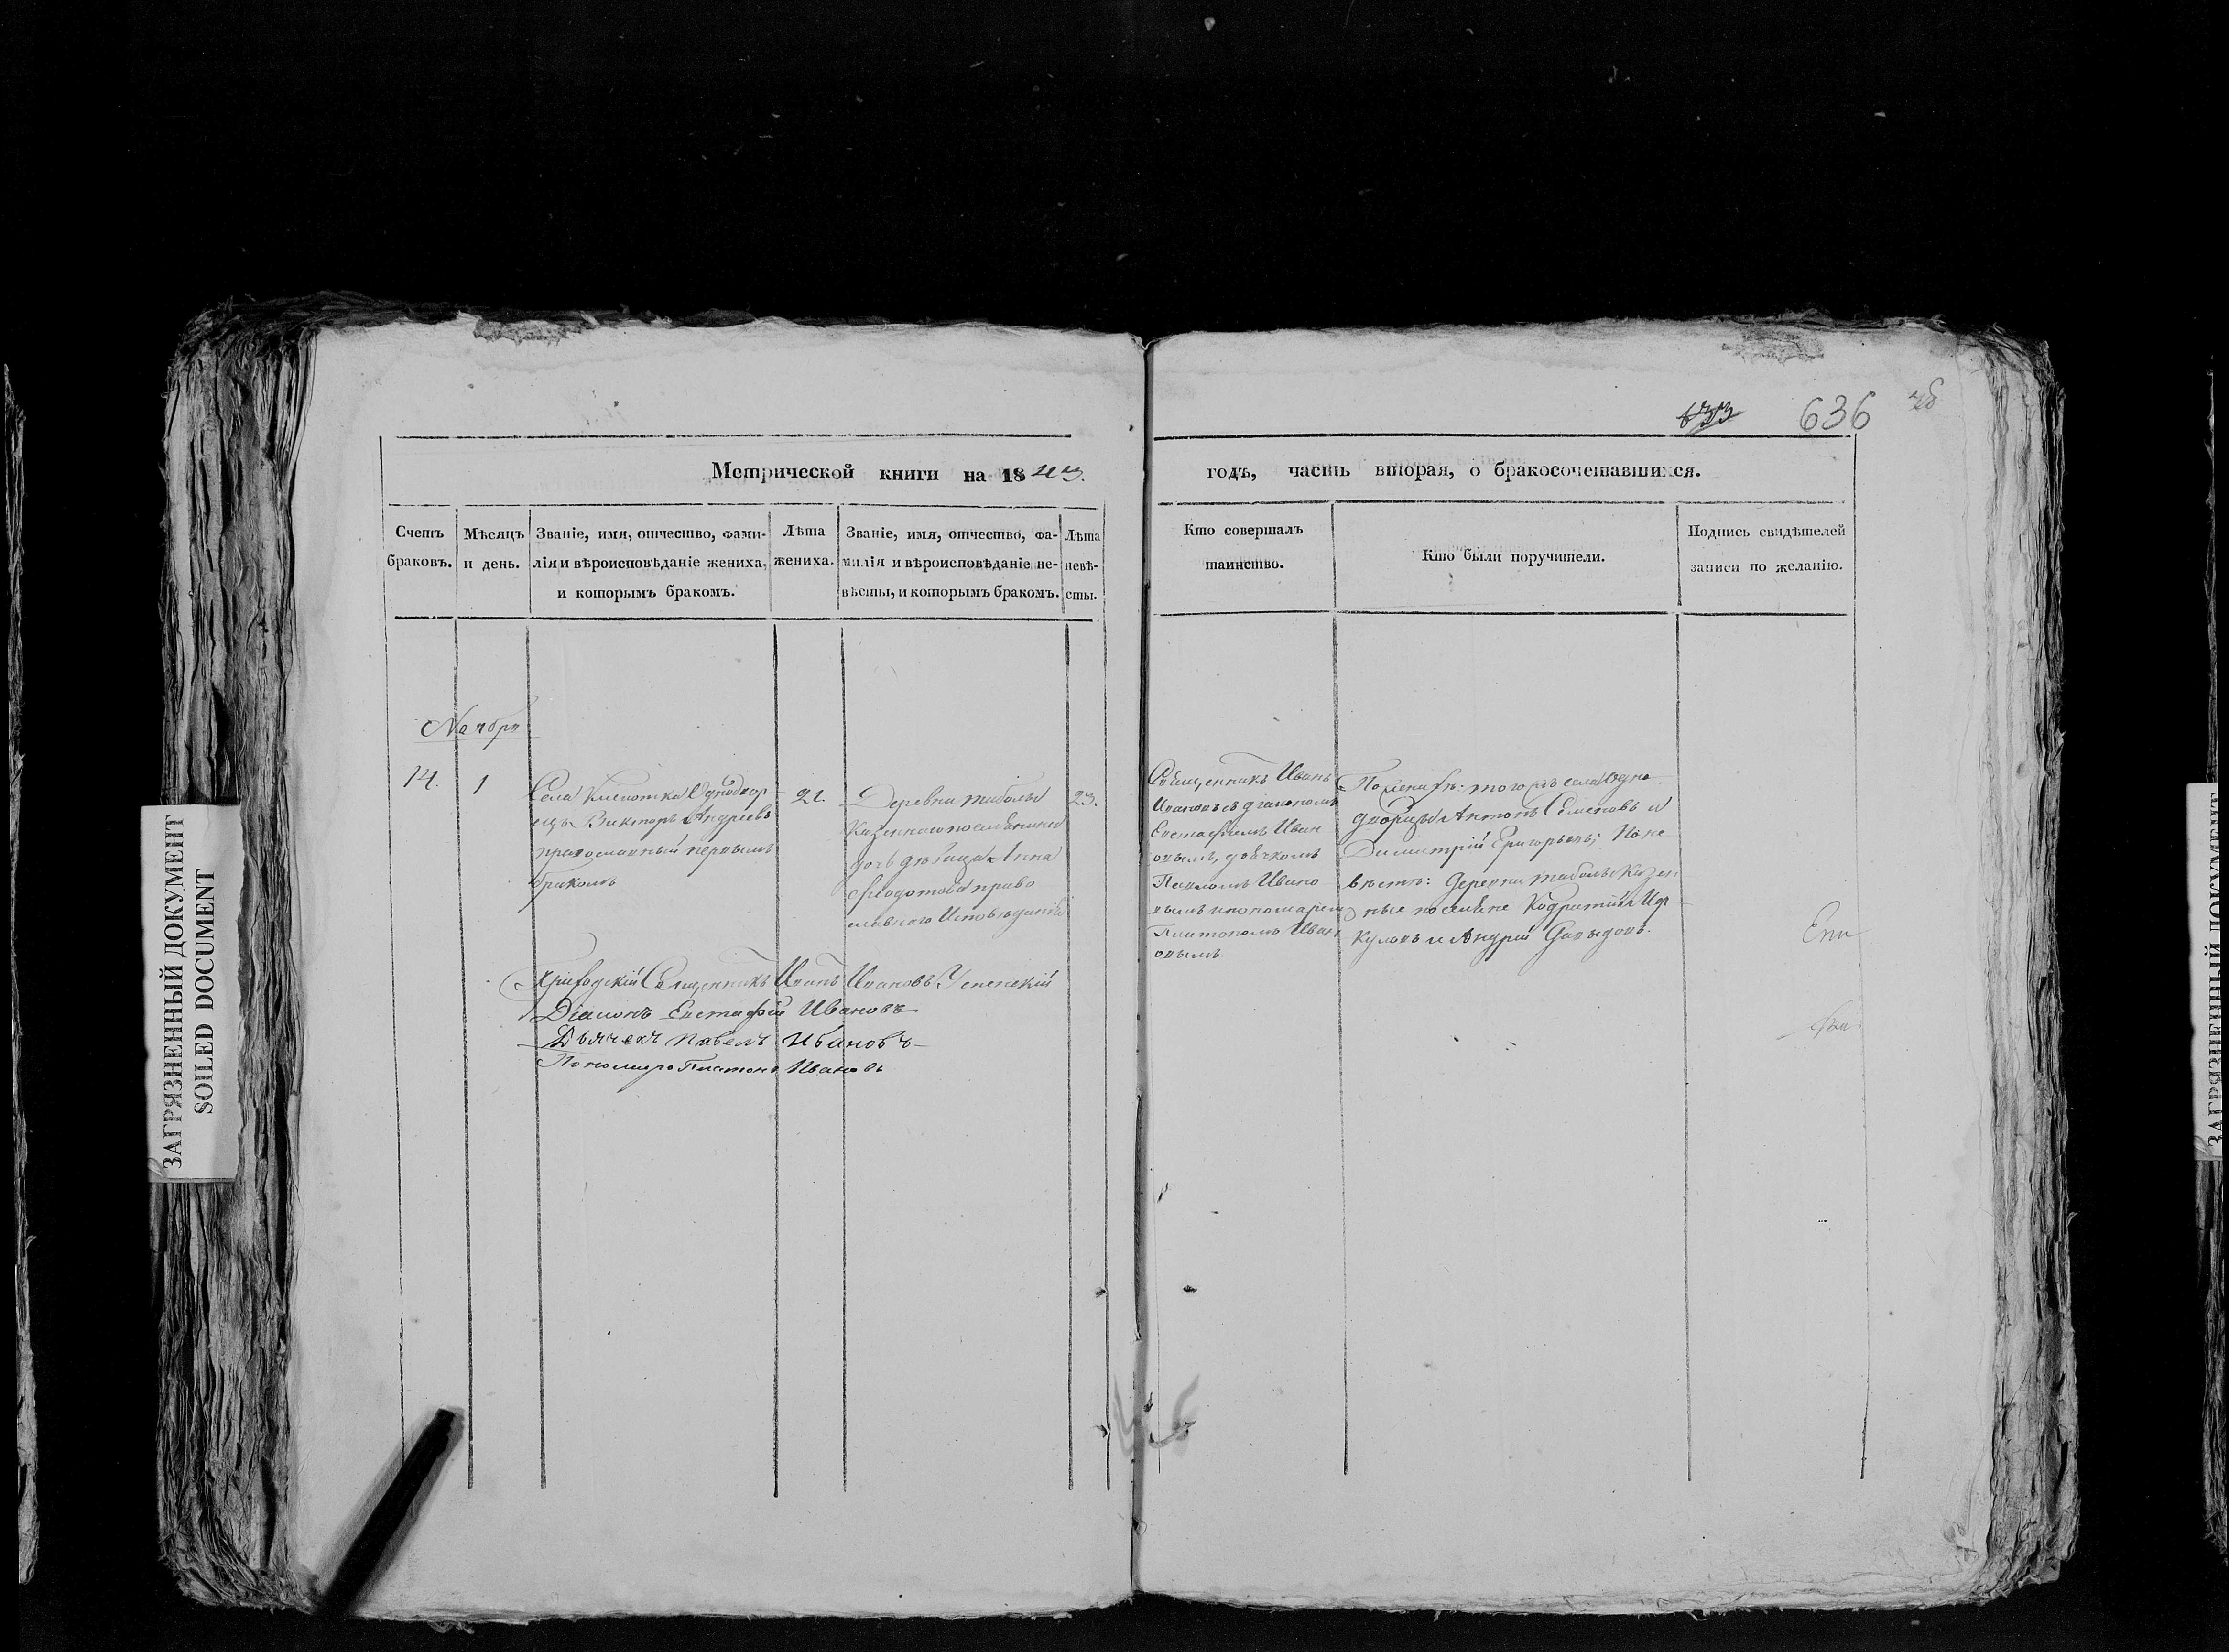 633 636
Метрической книги на 1843.
годъ, часть вторая, о бракосочетавшихся.
Счетъ браковъ.
Мѣсяцъ и день.
Званіе, имя, отчество, фами-
лія и вѣроисповѣданіе жениха,
и которымъ бракомъ.
Лѣта
жениха.
Званіе, имя, отчество, фа-
милія и вѣроисповѣданіе не-
вѣсты, и которымъ бракомъ.
Лѣта
невѣ-
сты.
Кто совершалъ
таинство.
Кто были поручители.
Подпись свидѣтелей
записи по желанію.
Ноября
14. 1
Села Однодвор
ецъ Викторъ Андреевъ
православный первымъ
бракомъ
21.
Деревни
Казеннаго поселянина
дочь дѣвица Анна
Ѳеодотова право
славнаго Исповѣданія
23.
Священникъ Иванъ
Ивановъ съ діакономъ
Евстафіемъ Иван
овымъ, дьячкомъ
Павломъ Ивано
вымъ и пономаремъ
Платономъ Иван
овымъ.
По женихѣ: того жъ села Одно
дворцы Антонъ Семеновъ и
Димитрій Григорьевъ; По не
вѣстѣ: деревни Казен
ные поселяне
и Андрей Давыдовъ.
Приходскій Священникъ Иванъ Ивановъ Успенскій
Діаконъ Евстафій Ивановъ
Дьячекъ Павелъ Ивановъ
Пономарь Платонъ Ивановъ
ЗАГРЯЗНЕННЫЙ ДОКУМЕНТ
SOILED DOCUMENT
ЗАГРЯЗНЕННЫЙ ДОКУМЕНТ